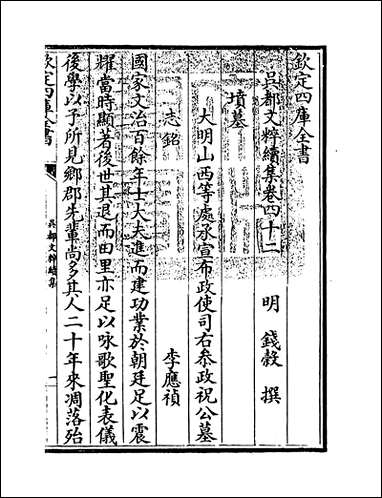 欽定四庫全書
吳都文粹續集卷四十二
明 錢穀 撰
墳墓
大明山西等處承宣布政使司右叅政祝公墓
志銘 李應禎
國家文治百餘年士大夫進而建功業於朝廷足以震
耀當時顯著後世其退而田里亦足以咏歌聖化表儀
後學以予所見鄉郡先輩尚多其人二十年來凋落殆
欽定四庫全書
吳都文粹續集
一